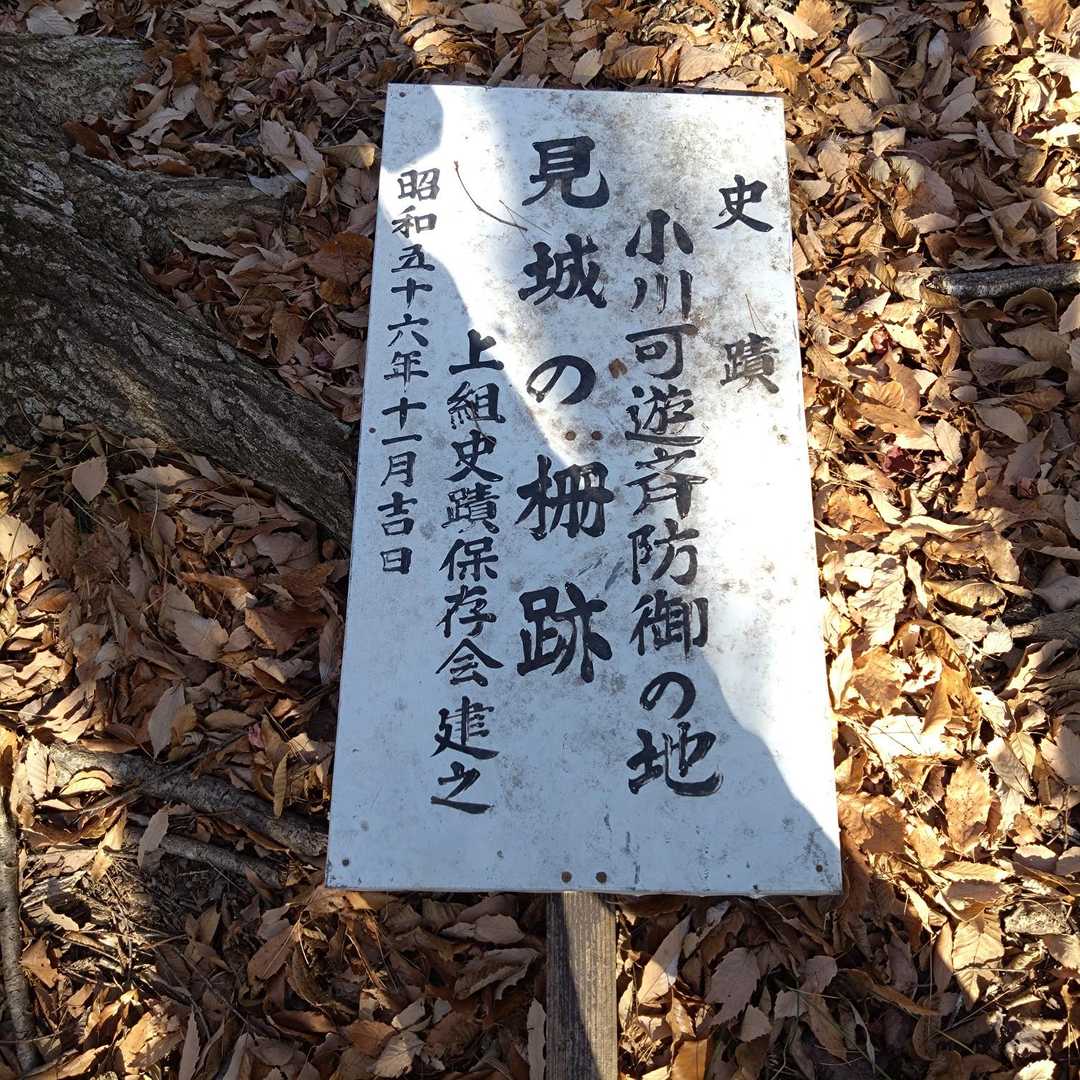 史蹟
小川可遊斉防御の地
見城の柵跡
上組史蹟保存会建之
昭和五十六年十一月吉日